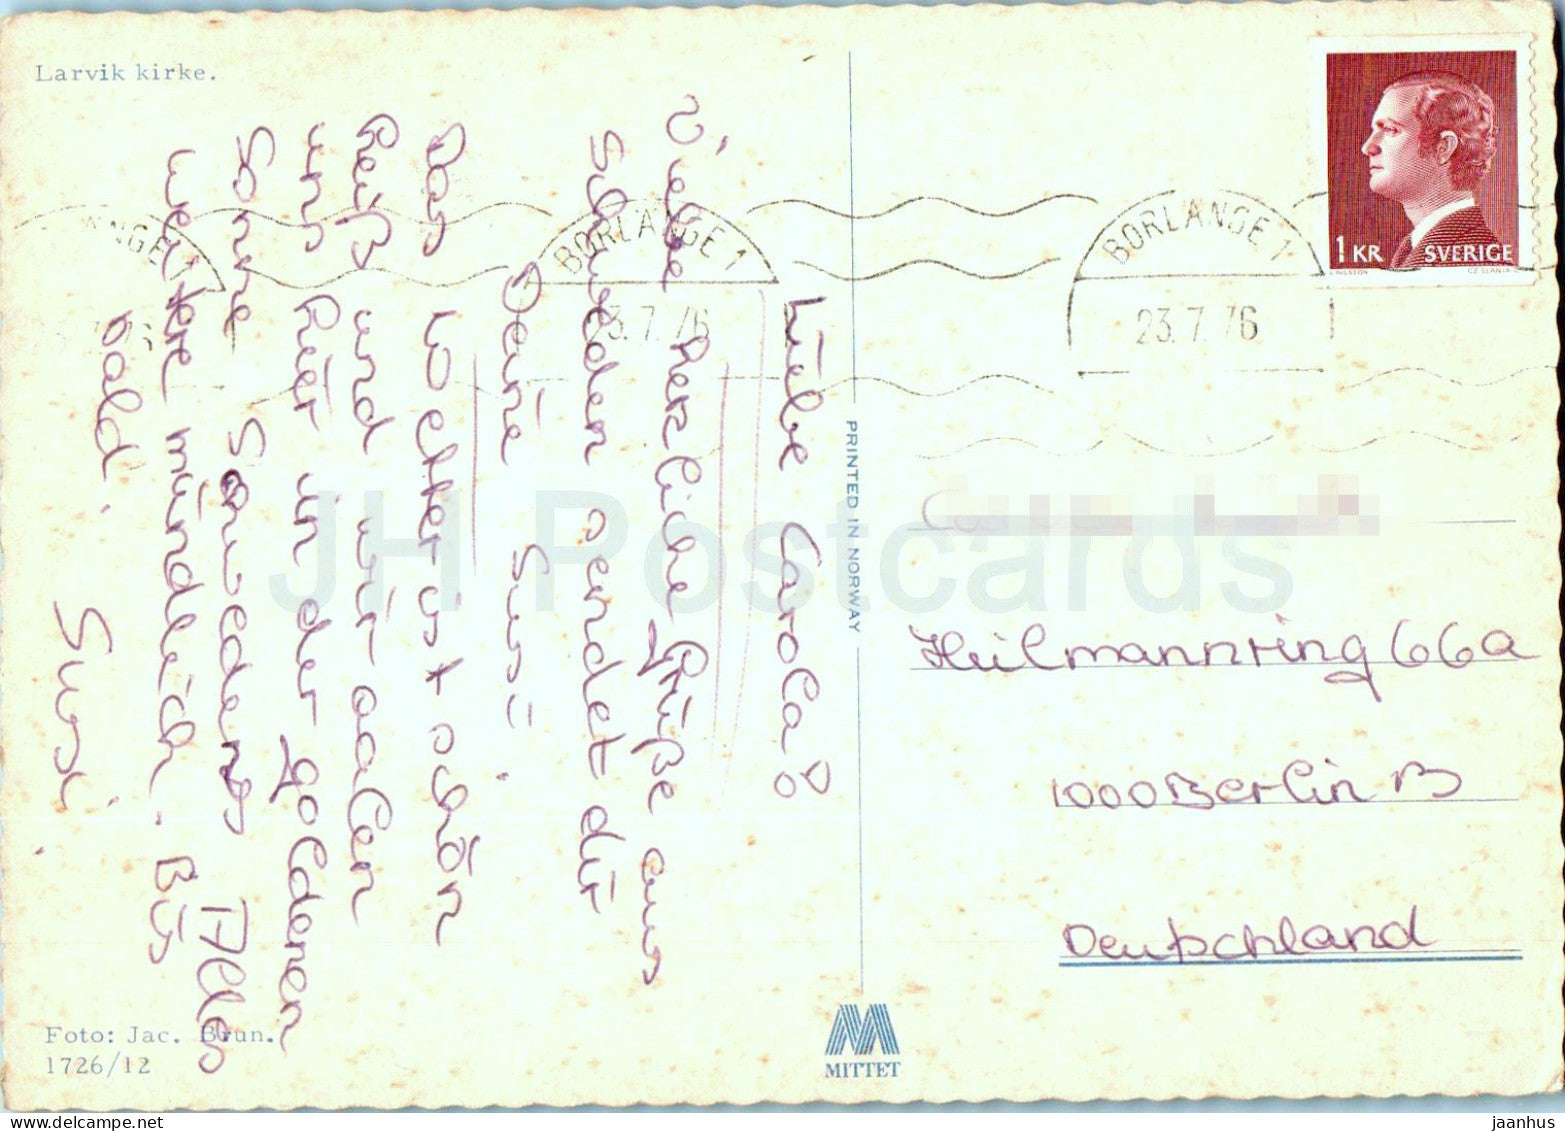 Larvik kirke.
Liebe Carola!
Viele herzliche Grüße aus
Schweden sendet dir
Deine Susi.
Das Wetter ist schön
heiß und wir aalen
uns hier in der goldenen
Sonne Schwedens. Alles
weitere mündlich. Bis
bald.
Susi.
Foto: Jac. Brun.
1726/12
PRINTED IN NORWAY
MITTET
BORLÄNGE 1
23.7.76
BORLÄNGE 1
23.7.76
ÄNGE 1
7.76
1 KR SVERIGE
L. NILSSON
CZ SLANIA
Heilmannring 66a
1000 Berlin 13
Deutschland
JH Postcards
jaanhus
www.delcampe.net